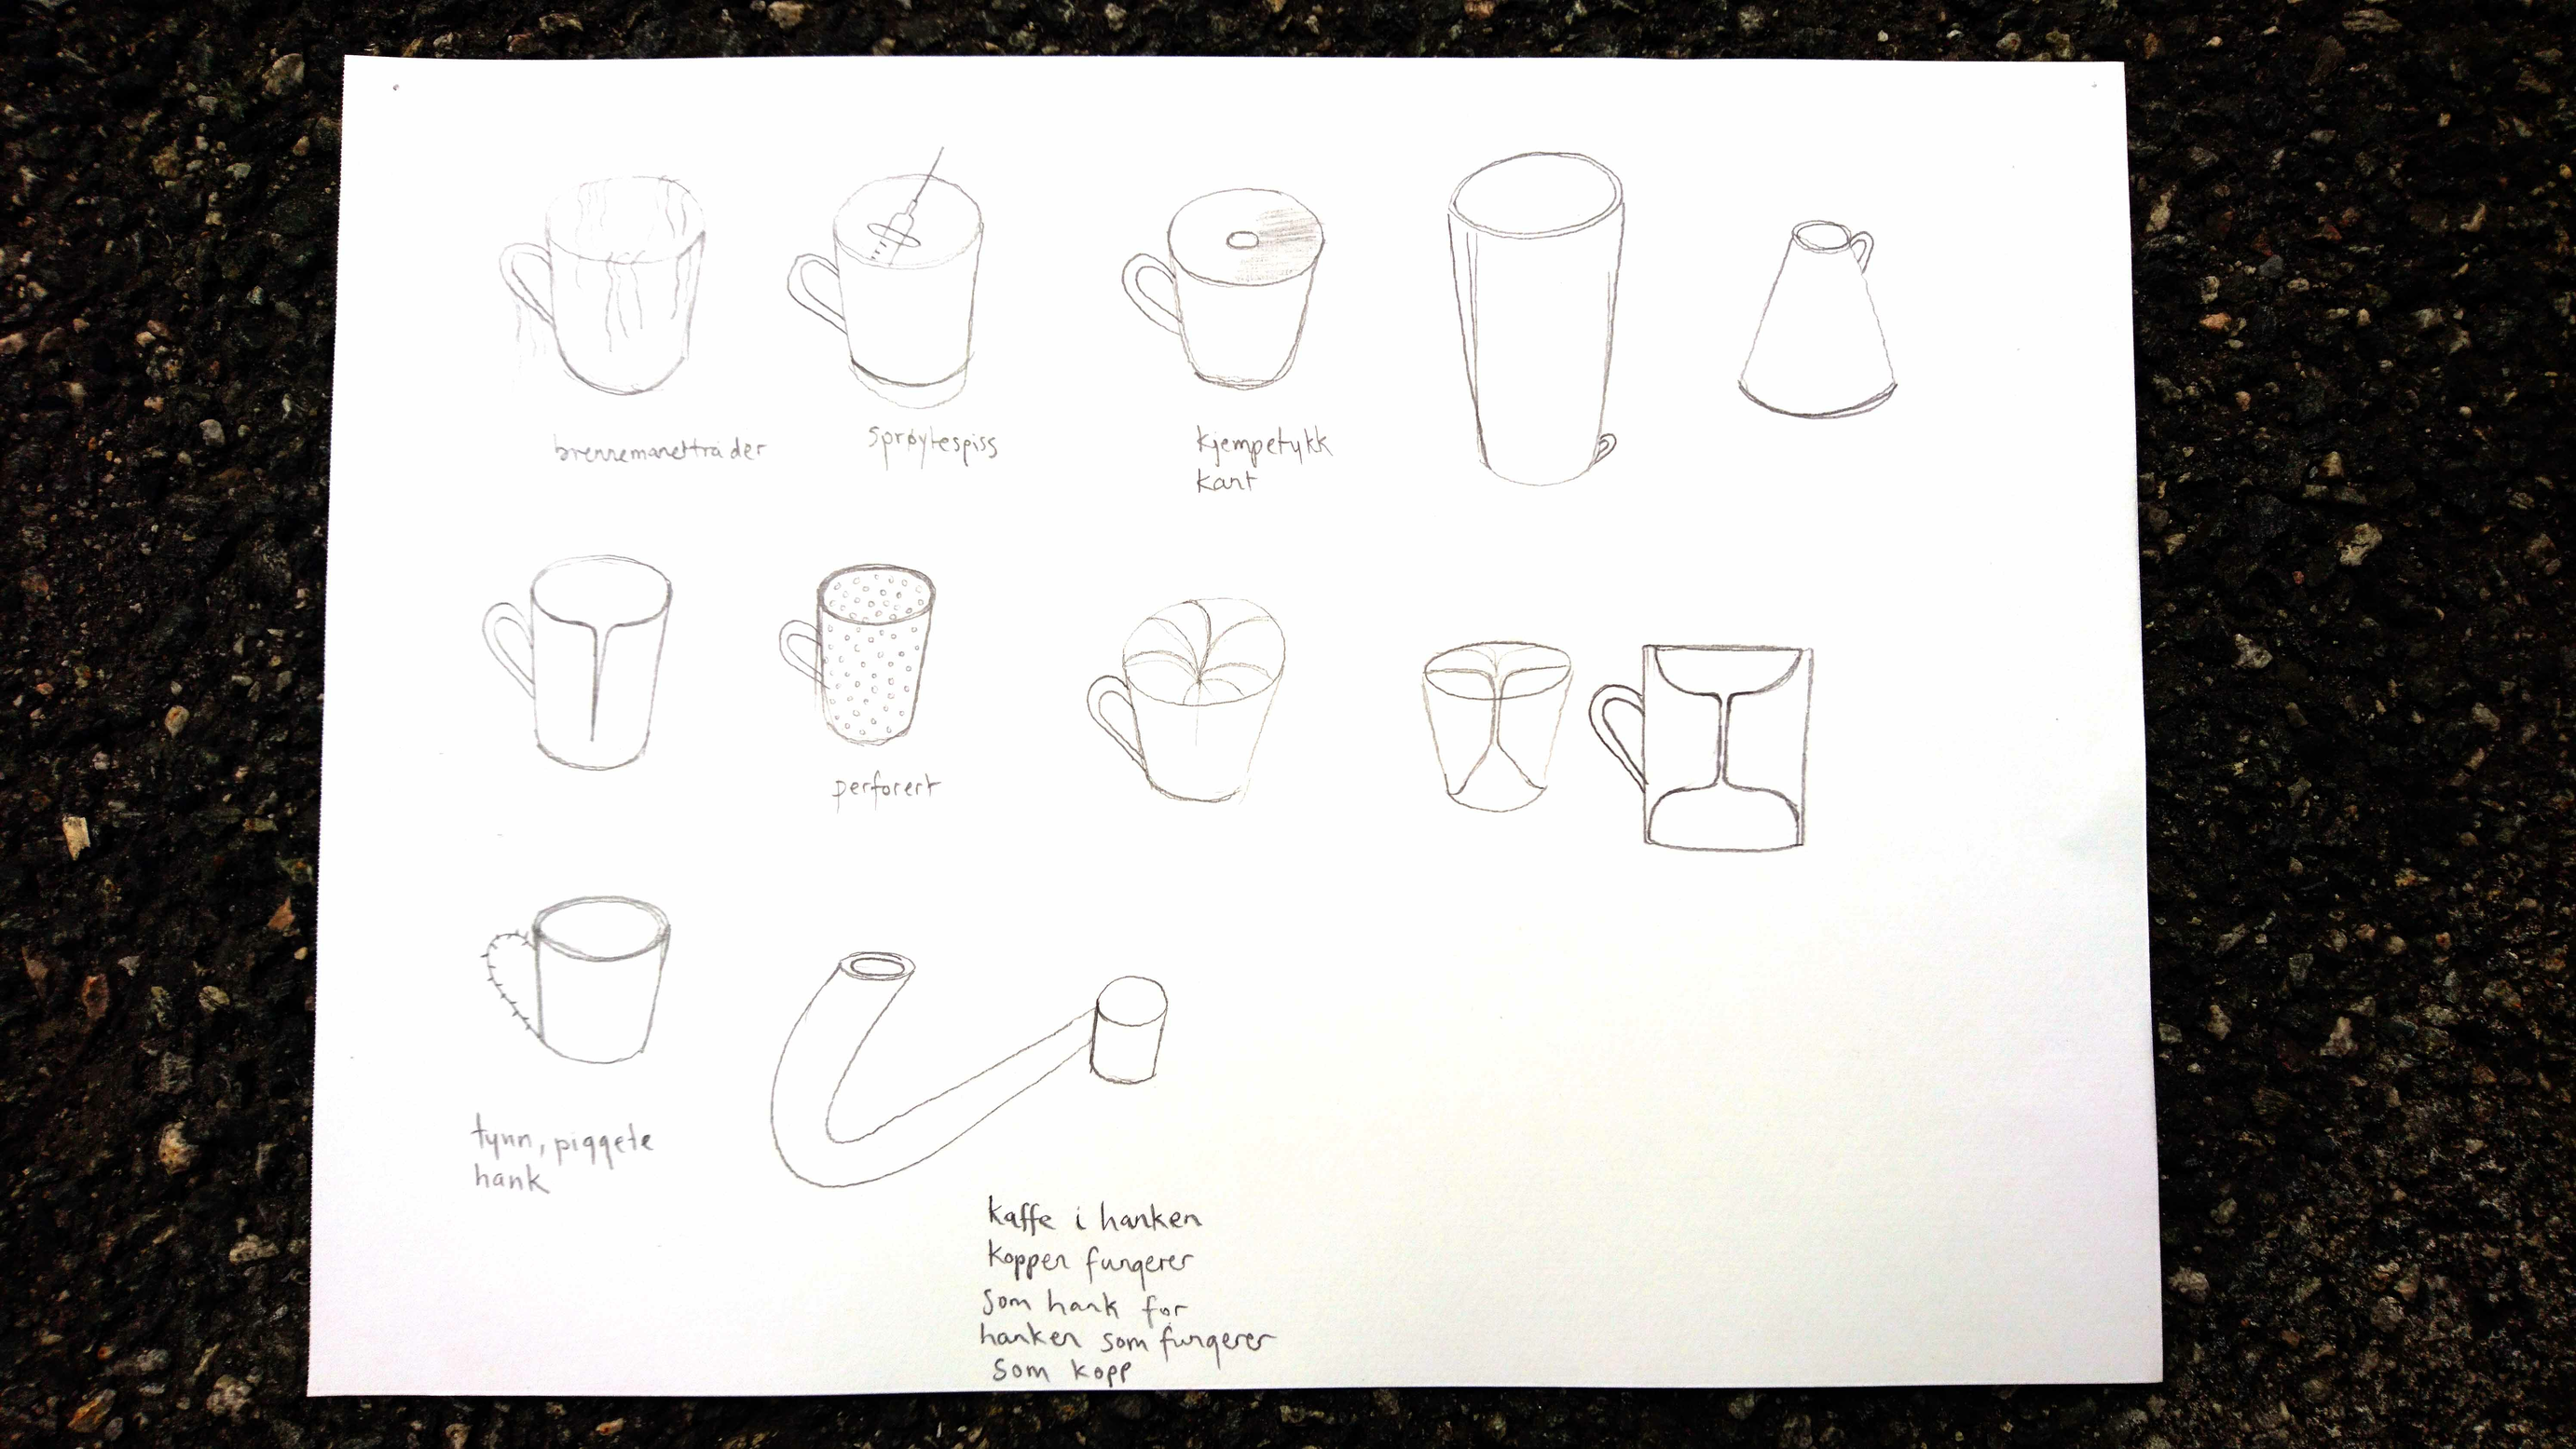 brennemanettråder
sprøytespiss
kjempetykk
kant
perforert
tynn, piggete
hank
kaffe i hanken
koppen fungerer
som hank for
hanken som fungerer
som kopp